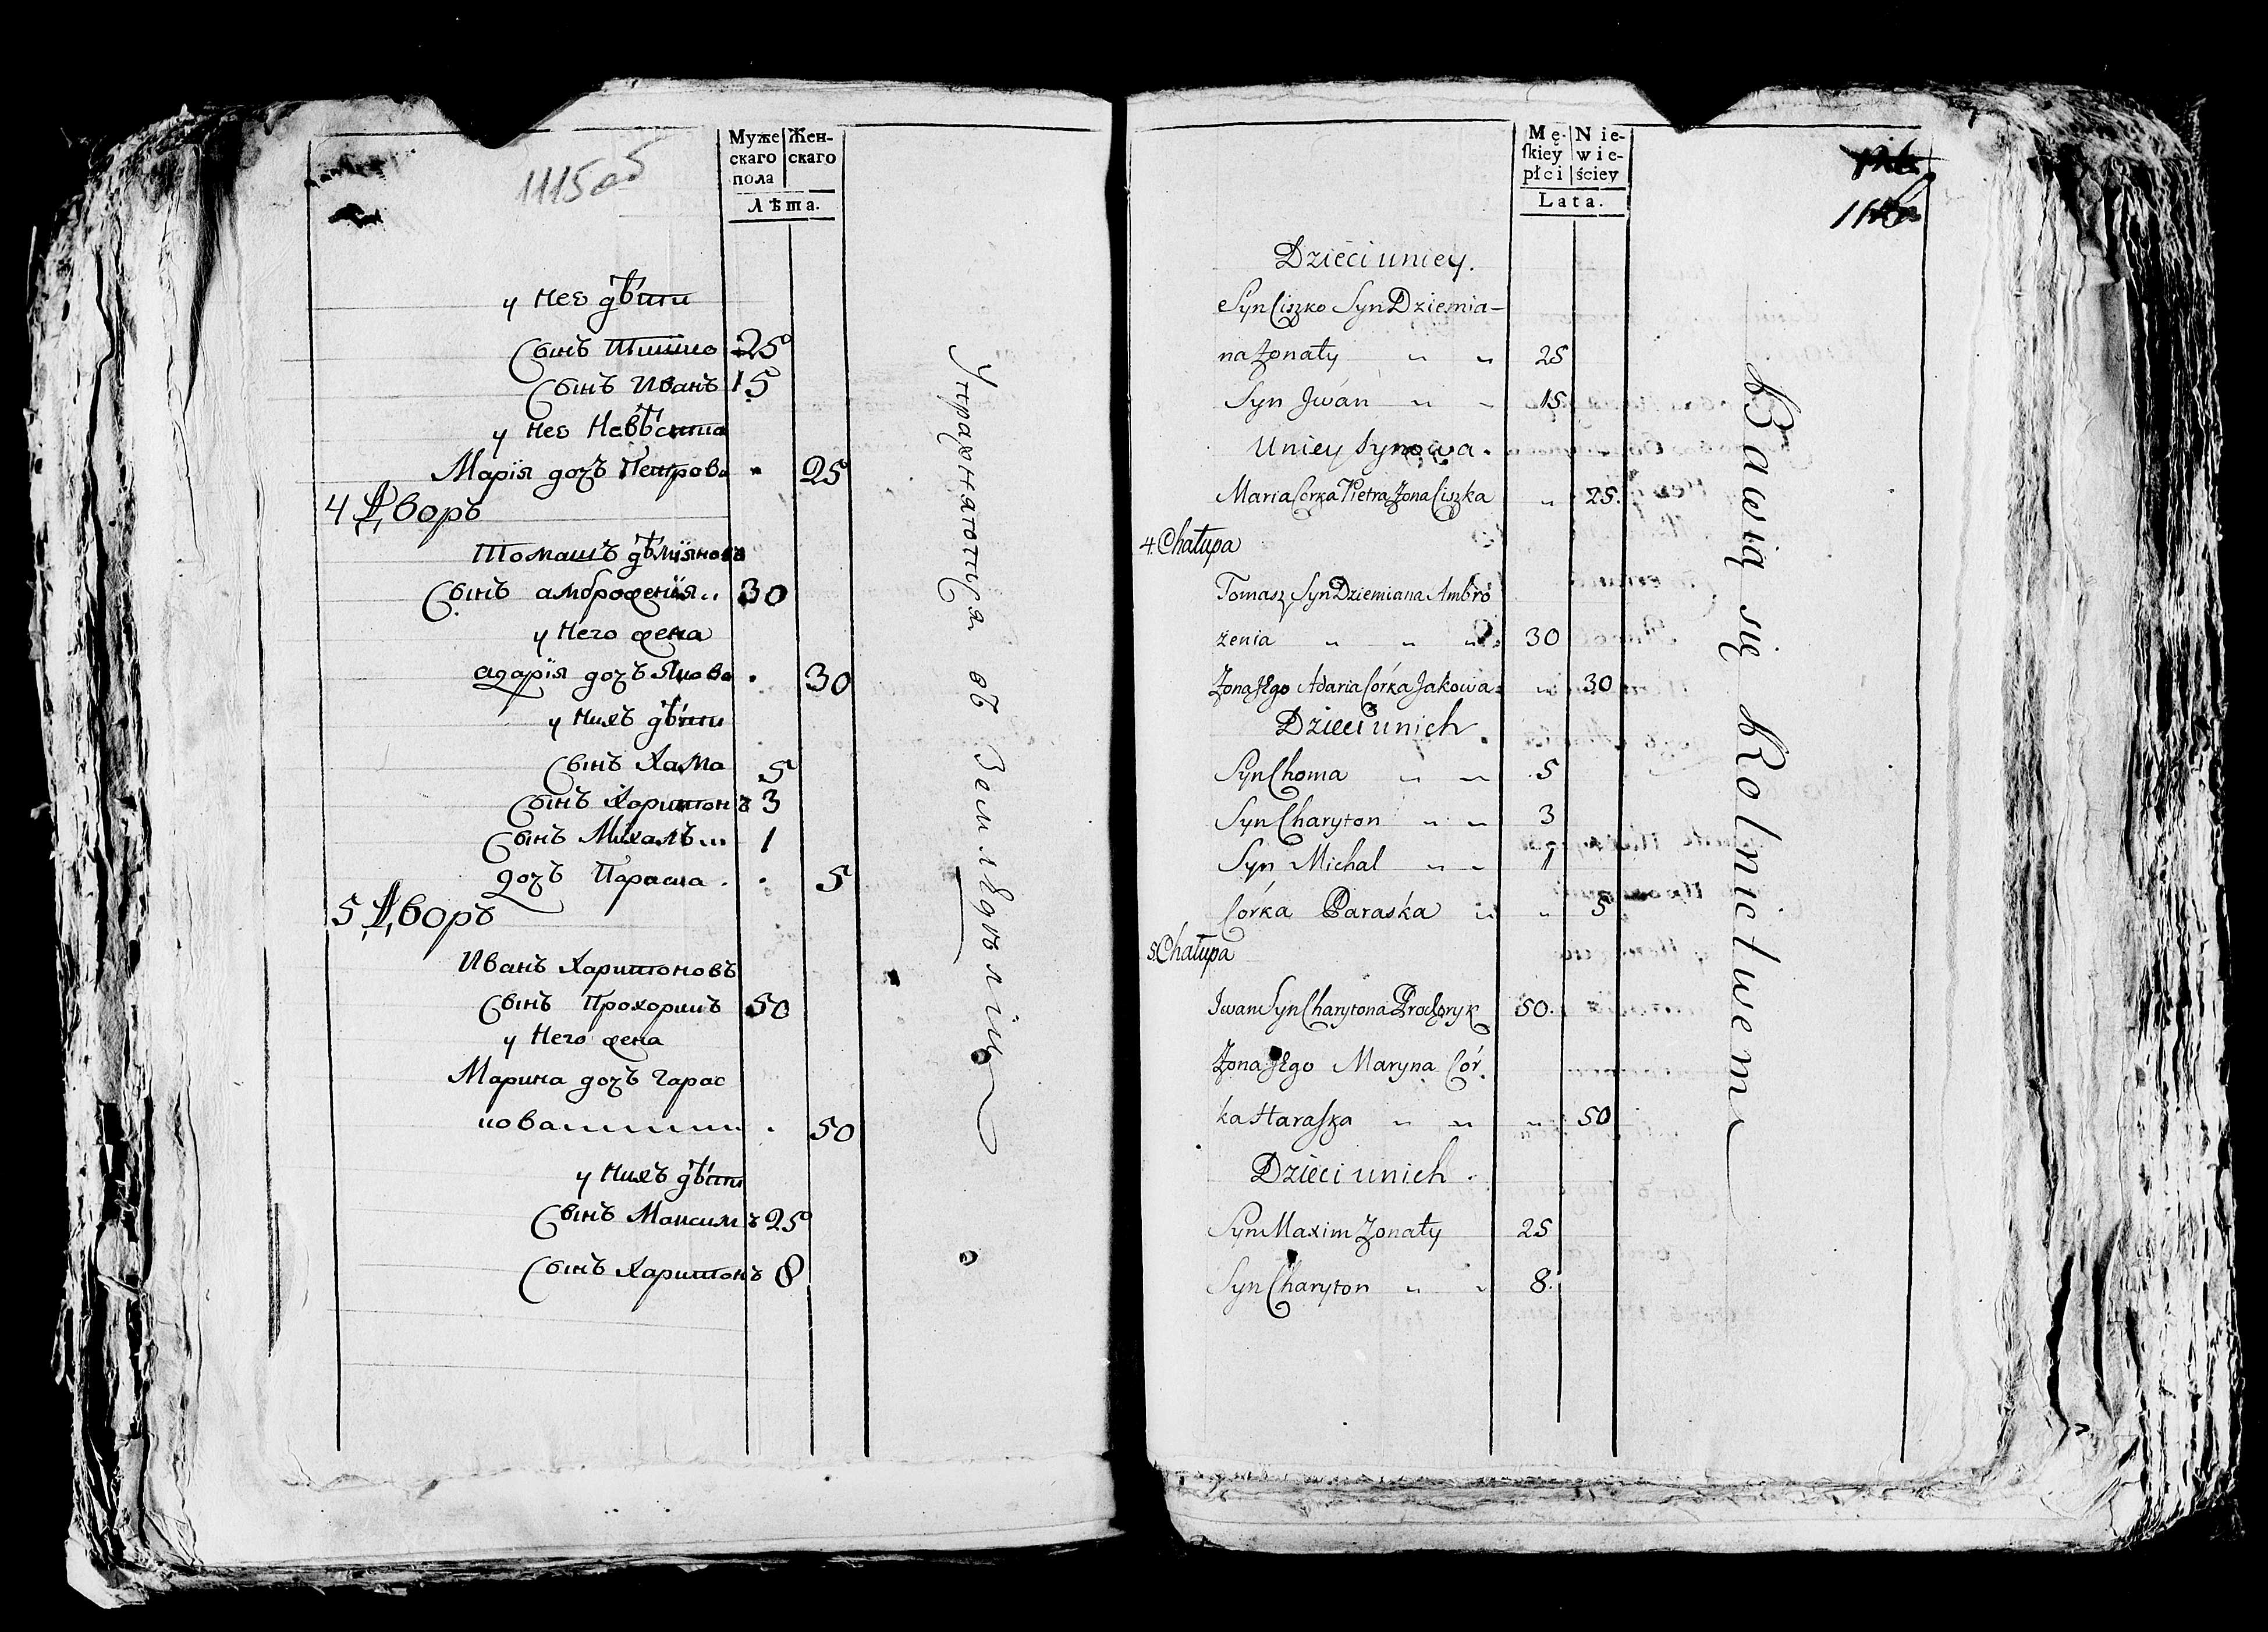 1115 об
Муже
скаго
пола
Жен-
скаго
Лѣта.
у нее дѣти
Сынъ Тишко 25
Сынъ Иванъ 15
у нее Невѣстка
Марія дочь Петрова 25
4 Дворъ
Томашъ дѣміяновъ
Сынъ амброженія 30
у Него жена
адарія дочь Якова 30
у нихъ дѣти
Сынъ Хама 5
Сынъ Харитонъ 3
Сынъ Михалъ 1
дочь Параска 5
5 Дворъ
Иванъ Харитоновъ
Сынъ Прохорикъ 50
у Него жена
Марина дочь Гарас
кова 50
у нихъ дѣти
Сынъ Максимъ 25
Сынъ Харитонъ 8
Упражняются въ Земледѣліи
Mę-
skiey
płci
Nie-
wie-
ściey
Lata.
Dzieci u niey.
Syn Ciszko Syn Dziemia-
na Żonaty " " 25
Syn Jwan " " 15
U niey Synowa.
Maria Corka Pietra Żona Ciszka " 25.
4. Chałupa
Tomasz Syn Dziemiana Ambro
żenia " " " 30
Żona Jego Adaria Córka Jakowa " 30
Dzieci u nich
Syn Choma " " 5
Syn Charyton " " 3
Syn Michal " " 1
Córka Paraska " " 5
5. Chałupa
Jwan Syn Charytona Prochoryk 50.
Żona Jego Maryna Cór.
ka Haraska " " " 50
Dzieci u nich.
Syn Maxim Żonaty 25
Syn Charyton " " 8.
Bawią się Rolnictwem